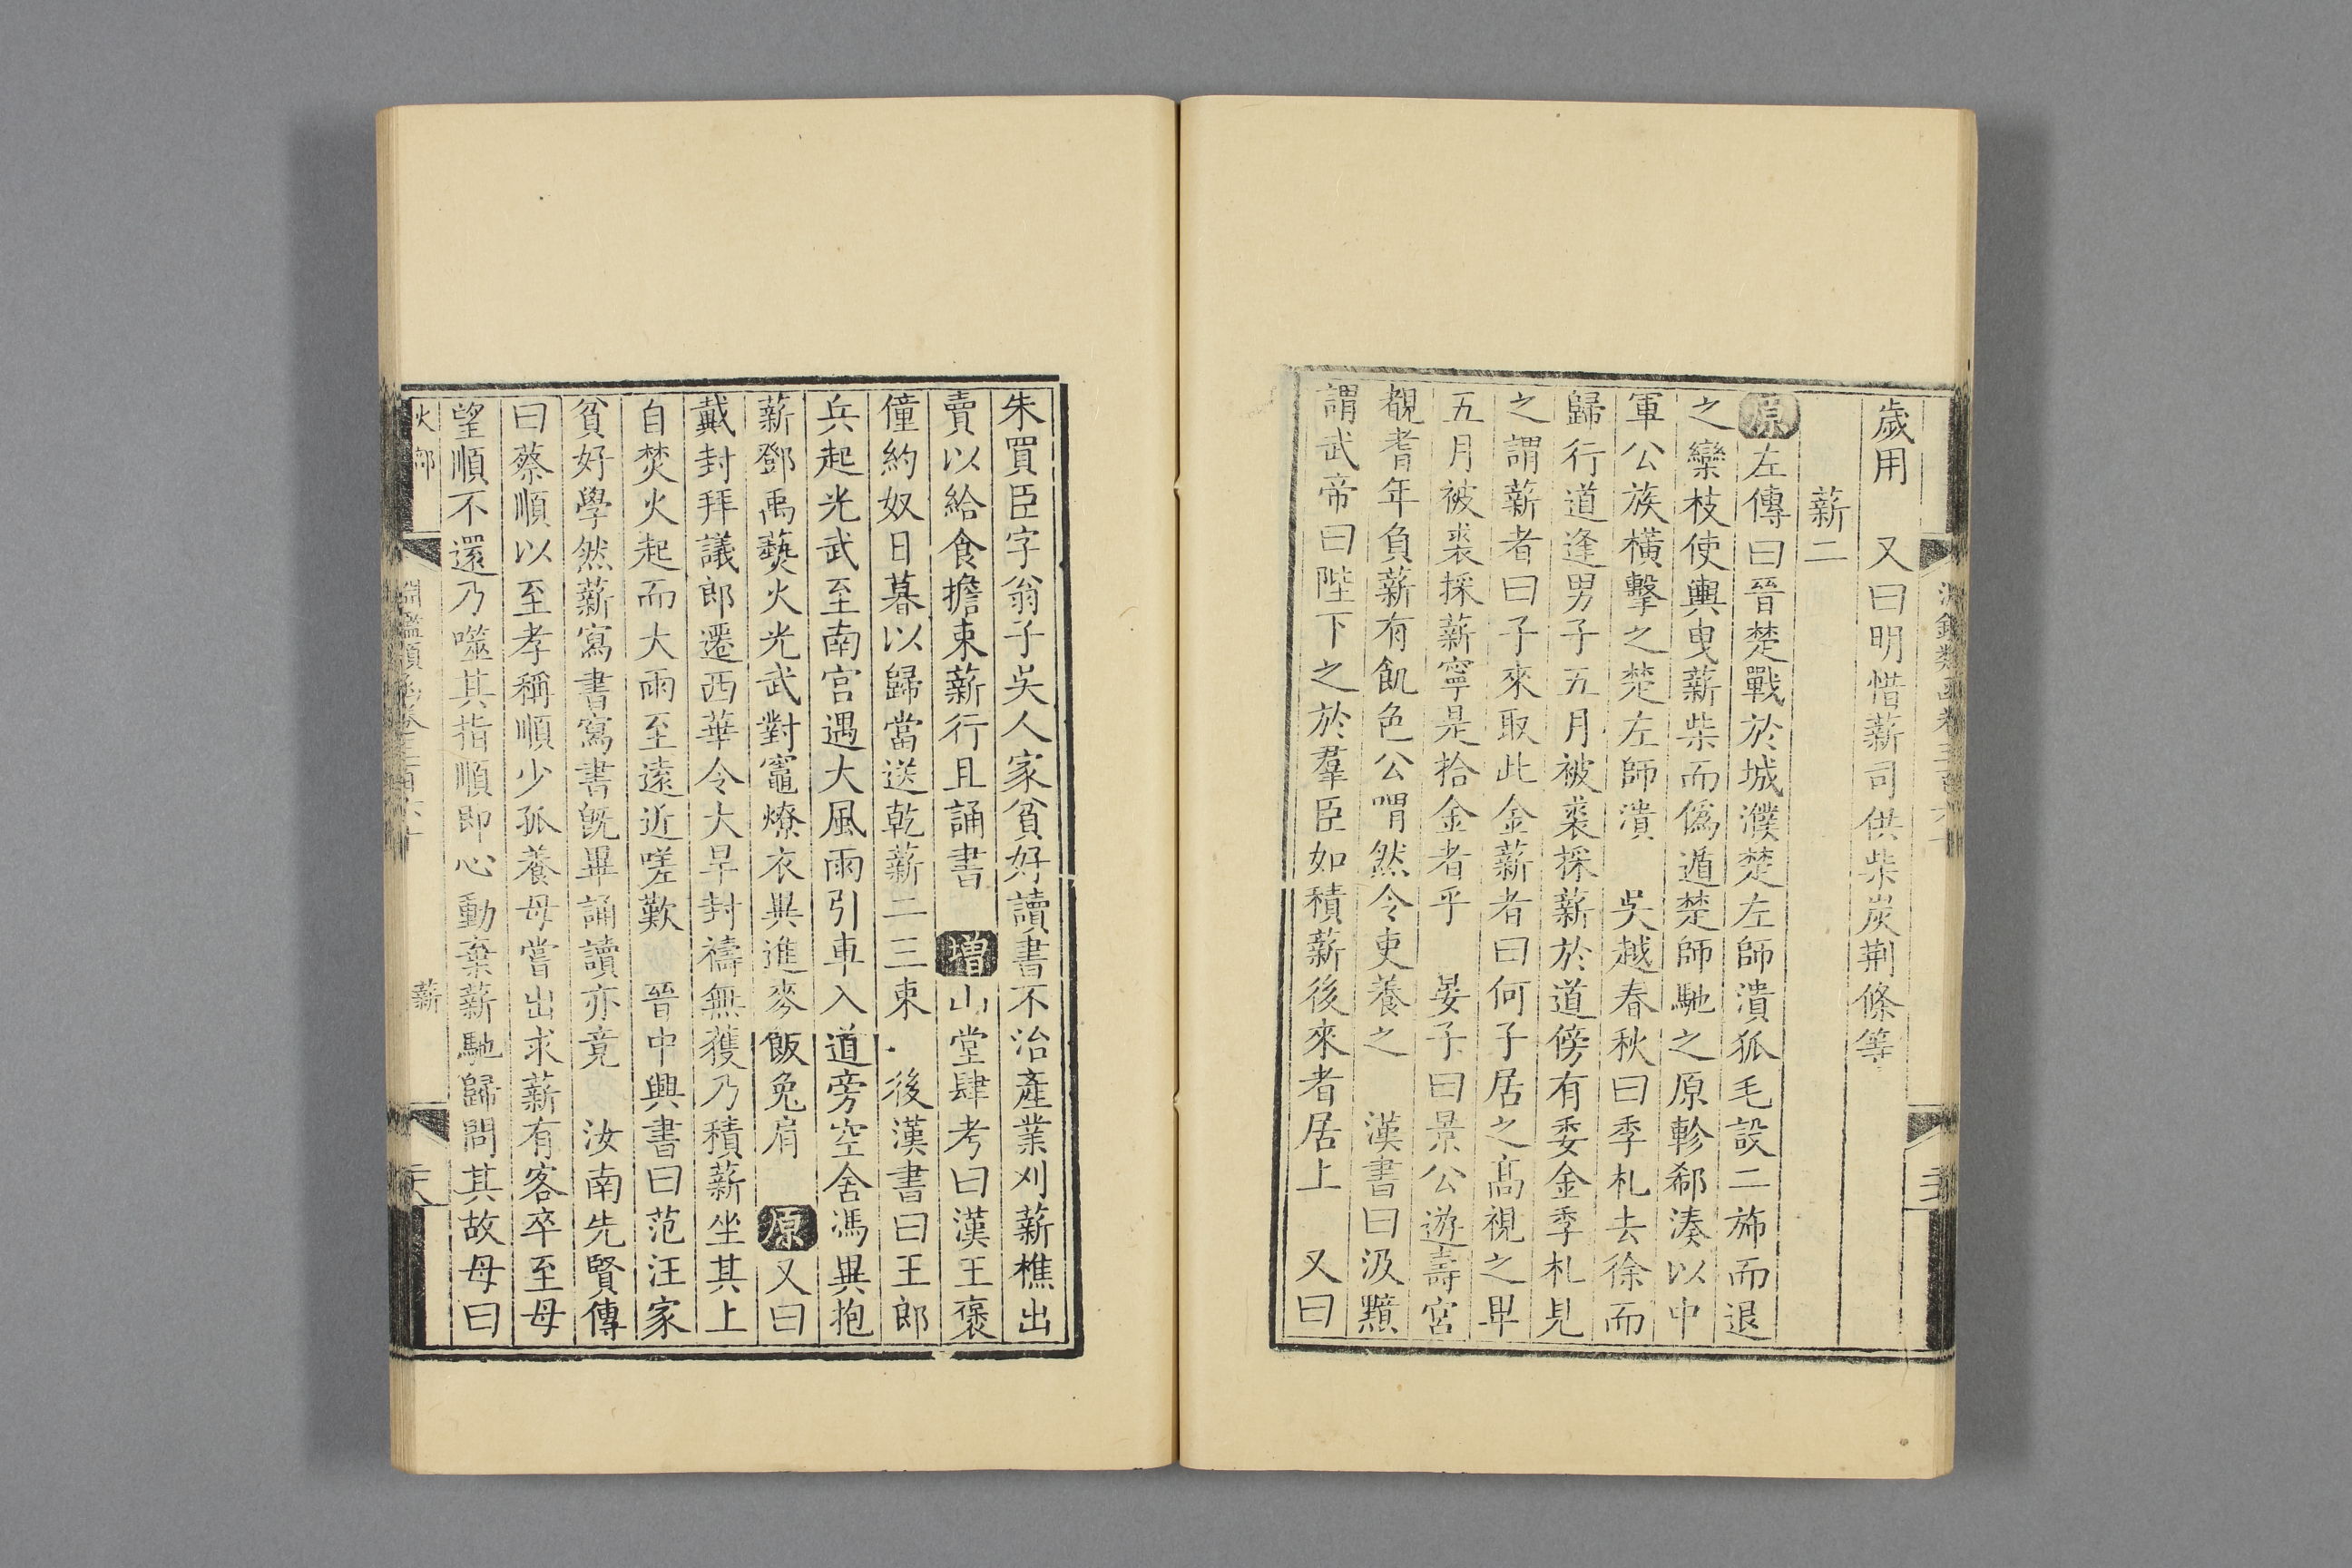 歲用　又曰明惜薪司供柴炭荆條等
薪二
原左傳曰晉楚戰於城濮楚左師潰狐毛設二斾而退
之欒枝使輿曳薪柴而僞遁楚師馳之原軫郤湊以中
軍公族橫擊之楚左師潰　吳越春秋曰季札去徐而
歸行道逢男子五月被裘採薪於道傍有委金季札見
之謂薪者曰子來取此金薪者曰何子居之髙視之卑
五月被裘採薪寧是拾金者乎　晏子曰景公遊壽宮
覩耆年負薪有飢色公喟然令吏養之　漢書曰汲黯
謂武帝曰陛下之於羣臣如積薪後來者居上　又曰
朱買臣字翁子吳人家貧好讀書不治產業刈薪樵出
賣以給食擔束薪行且誦書　增山堂肆考曰漢王褒
僮約奴日暮以歸當送乾薪二三束　後漢書曰王郎
兵起光武至南宮遇大風雨引車入道旁空舍馮異抱
薪鄧禹爇火光武對竈燎衣異進麥飯兔肩　原又曰
戴封拜議郎遷西華令大旱封禱無獲乃積薪坐其上
自焚火起而大雨至遠近嗟歎　晉中興書曰范汪家
貧好學然薪寫書寫書旣畢誦讀亦竟　汝南先賢傳
曰蔡順以至孝稱順少孤養母嘗出求薪有客卒至母
望順不還乃噬其指順即心動棄薪馳歸問其故母曰
火部　淵鑑類函卷三百六十　薪